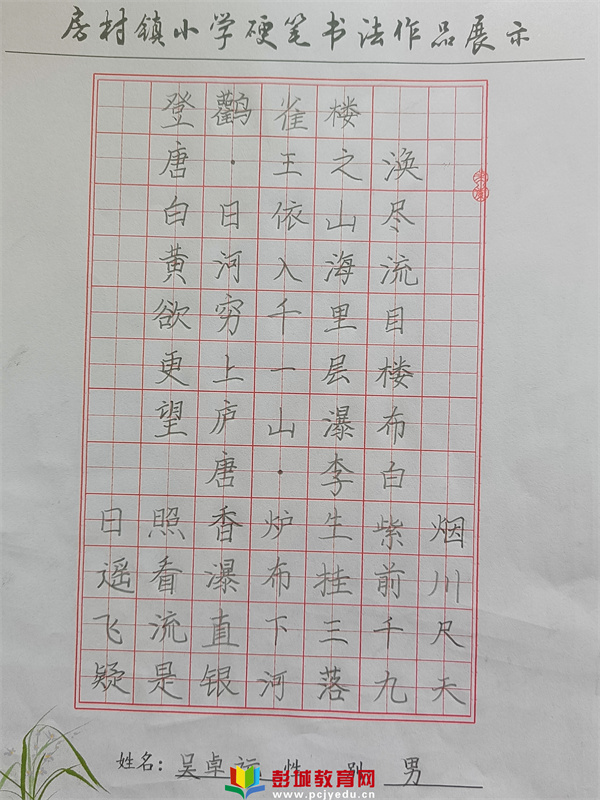 房村镇小学硬笔书法作品展示
登鹳雀楼
唐·王之涣
白日依山尽
黄河入海流
欲穷千里目
更上一层楼
望庐山瀑布
唐·李白
日照香炉生紫烟
遥看瀑布挂前川
飞流直下三千尺
疑是银河落九天
姓名：吴卓 性别 男
彭城教育网
www.pcjyedu.cn